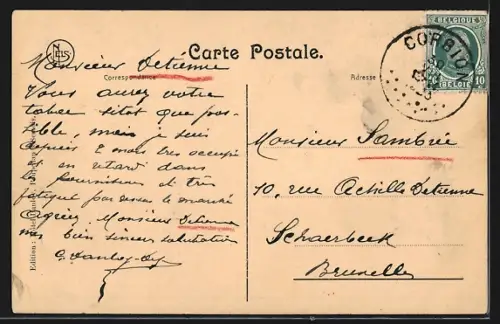 NELS
Carte Postale.
Correspondance
Adresse
CORBION
BELGIQUE
BELGIË
10
Monsieur Detienne
Vous aurez votre
tabac sitot que pos-
sible, mais je suis
depuis 2 mois très occupé
et en retard dans
la fourniture et très
fatigué par le marché
Agréez Monsieur Detienne
mes bien sincères salutations
Monsieur Sambrée
10, rue Achille Detienne
Schaerbeek
Bruxelles
Edition :